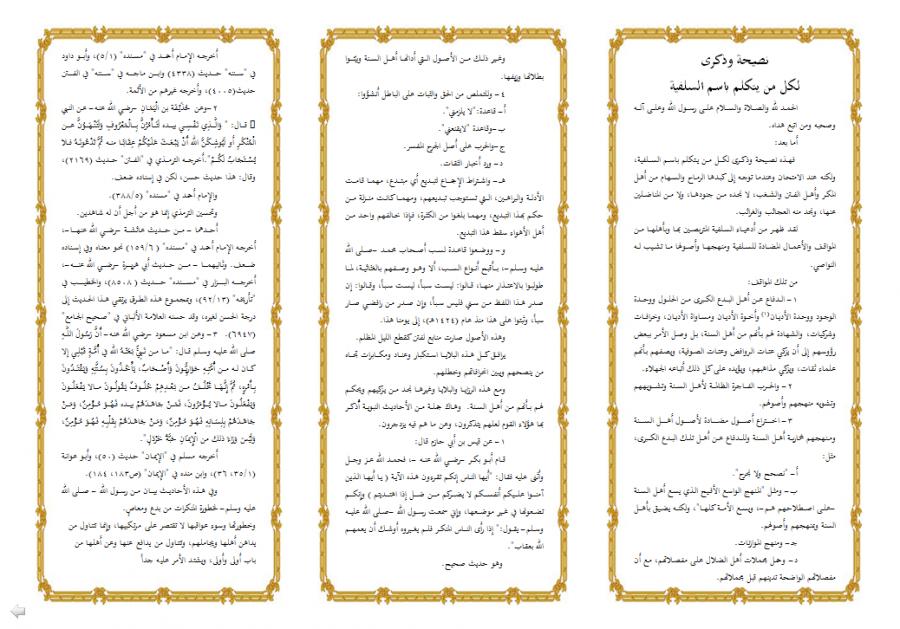 نصيحة وذكرى
لكل من يتكلم باسم السلفية
الحمد لله والصلاة والسلام على رسول الله وعلى آله
وصحبه ومن اتبع هداه.
أما بعد:
فهذه نصيحة وذكرى لكل من يتكلم باسم السلفية،
ولكنه عند الامتحان وعندما توجه إلى كبدها الرماح والسهام من أهل
المكر وأهل الفتن والشغب، لا تجده من جنودها، ولا من المناضلين
عنها، وتجد منه العجائب والغرائب.
لقد ظهر من أدعياء السلفية المتربصين بها وبأهلها من
المواقف والأعمال المضادة للسلفية ومنهجها وأصولها ما تشيب له
النواصي.
من تلك المواقف:
١- الدفاع عن أهل البدع الكبرى من الحلول ووحدة
الوجود ووحدة الأديان(١) وأخوة الأديان ومساواة الأديان، وخرافات
وشركيات، والشهادة لهم بأنهم من أهل السنة، بل وصل الأمر ببعض
رؤوسهم إلى أن يزكي عتات الروافض وعتات الصوفية، ويصفهم بأنهم
علماء ثقات، ويزكي مذاهبهم، ويؤيده على كل ذلك أتباعه الجهلاء.
٢- والحرب الفاجرة الظالمة لأهل السنة وتشويههم
وتشويه منهجهم وأصولهم.
٣- اختراع أصول مضادة لأصول أهل السنة
ومنهجهم لمحاربة أهل السنة وللدفاع عن أهل تلك البدع الكبرى،
مثل:
أ- "نصحح ولا نجرح".
ب- ومثل "المنهج الواسع الأفيح الذي يسع أهل السنة
-على اصطلاحهم هم-، ويسع الأمة كلها"، ولكنه يضيق بأهل
السنة ومنهجهم وأصولهم.
جـ- ومنهج الموازنات.
د- وحمل مجملات أهل الضلال على مفصلاتهم، مع أن
مفصلاتهم الواضحة تدينهم قبل مجملاتهم.
وغير ذلك من الأصول التي أدانها أهل السنة وبينوا
بطلانها وزيفها.
٤- وللتملص من الحق والثبات على الباطل أنشؤوا:
أ- قاعدة:"لا يلزمني".
ب-وقاعدة "لايقنعني".
ج-والحرب على أصل الجرح المفسر.
د- ورد أخبار الثقات.
هـ- واشتراط الإجماع لتبديع أي مبتدع، مهما قامت
الأدلة والبراهين، التي تستوجب تبديعهم، ومهما كانت منزلة من
حكم بهذا التبديع، ومهما بلغوا من الكثرة، فإذا خالفهم واحد من
أهل الأهواء سقط هذا التبديع.
و- ووضعوا قاعدة لسب أصحاب محمد -صلى الله
عليه وسلم-، بأقبح أنواع السب، ألا وهو وصفهم بالغثائية، لما
طولبوا بالاعتذار منها، قالوا: ليست سباً، ليست سباً، وقالوا: إن
صدر هذا اللفظ من سني فليس سباً، وإن صدر من رافضي صار
سباً، وثبتوا على هذا منذ عام (١٤٢٤هـ)، إلى يومنا هذا.
وهذه الأصول صارت منابع لفتن كقطع الليل المظلم.
يرافق كل هذه البلايا استكبار وعناد ومكابرات تجاه
من ينصحهم ويبين انحرافاتهم وخطلهم.
ومع هذه الرزايا والبلايا وغيرها نجد من يزكيهم ويحكم
لهم بأنهم من أهل السنة. وهاك جملة من الأحاديث النبوية أذكر
بها هؤلاء القوم لعلهم يتذكرون، وعن ما هم فيه يزدجرون.
١- عن قيس بن أبي حازم قال:
قام أبو بكر -رضي الله عنه -، فحمد الله عز وجل
وأثنى عليه فقال: "أيها الناس إنكم تقرؤون هذه الآية ( يا أيها الذين
آمنوا عليكم أنفسكم لا يضركم من ضل إذا اهتديتم ) وإنكم
تضعونها في غير موضعها، وإني سمعت رسول الله -صلى الله عليه
وسلم-يقول:"إذا رأى الناس المنكر فلم يغيروه أوشك أن يعمهم
الله بعقاب".
وهو حديث صحيح.
أخرجه الإمام أحمد في "مسنده" (٥/١)، وأبو داود
في "سننه" حديث (٤٣٣٨) وابن ماجه في "سننه" في الفتن
حديث(٤٠٠٥)، وأخرجه غيرهم من الأئمة.
٢-وعن حُذَيْفَةَ بن الْيَمَانِ -رضي الله عنه- عن النبي
قال: " وَالَّذِي نَفْسِي بيده لَتَأْمُرُنَّ بِالْمَعْرُوفِ وَلَتَنْهَوُنَّ عن
الْمُنْكَرِ أو لَيُوشِكَنَّ الله أَنْ يَبْعَثَ عَلَيْكُمْ عِقَابًا منه ثُمَّ تَدْعُونَهُ فلا
يُسْتَجَابُ لَكُمْ".أخرجه الترمذي في "الفتن" حديث (٢١٦٩)،
وقال: هذا حديث حسن، لكن في إسناده ضعف.
والإمام أحمد في "مسنده" (٣٨٨/٥).
وتحسين الترمذي إنما هو من أجل أن له شاهدين.
أحدهما - من حديث عائشة -رضي الله عنها-،
أخرجه الإمام أحمد في "مسنده" (١٥٩/٦) نحو معناه وفي إسناده
ضعف. وثانيهما - من حديث أبي هريرة -رضي الله عنه-،
أخرجه البزار في "مسنده" حديث (٨٥٠٨)، والخطيب في
"تأريخه" (٩٢/١٣)، وبمجموع هذه الطرق يرتقي هذا الحديث إلى
درجة الحسن لغيره، وقد حسنه العلامة الألباني في "صحيح الجامع"
(٦٩٤٧). ٣- وعن ابن مسعود -رضي الله عنه- أَنَّ رَسُولَ اللَّهِ
صلى الله عليه وسلم قال: "ما من نَبِيٍّ بَعَثَهُ الله في أُمَّةٍ قَبْلِي إلا
كان له من أُمَّتِهِ حَوَارِيُّونَ وَأَصْحَابٌ، يَأْخُذُونَ بِسُنَّتِهِ وَيَقْتَدُونَ
بِأَمْرِهِ، ثُمَّ إِنَّهَا تَخْلُفُ من بَعْدِهِمْ خُلُوفٌ يَقُولُونَ مالا يَفْعَلُونَ
وَيَفْعَلُونَ مالا يُؤْمَرُونَ، فَمَنْ جَاهَدَهُمْ بيده فَهُوَ مُؤْمِنٌ، وَمَنْ
جَاهَدَهُمْ بِلِسَانِهِ فَهُوَ مُؤْمِنٌ، وَمَنْ جَاهَدَهُمْ بِقَلْبِهِ فَهُوَ مُؤْمِنٌ،
وَلَيْسَ وَرَاءَ ذلك من الْإِيمَانِ حَبَّةُ خَرْدَلٍ".
أخرجه مسلم في "الإيمان" حديث (٥٠)، وأبو عوانة
(٣٥/١، ٣٦)، وابن منده في "الإيمان" (ص١٨٣، ١٨٤).
وفي هذه الأحاديث بيان من رسول الله - صلى الله
عليه وسلم-لخطورة المنكرات من بدع ومعاصٍ.
وخطورتها وسوء عواقبها لا تقتصر على مرتكبيها، وإنما تتناول من
يداهن أهلها ويجاملهم، وتتناول من يدافع عنها وعن أهلها من
باب أولى وأولى، ويشتد الأمر عليه جداً